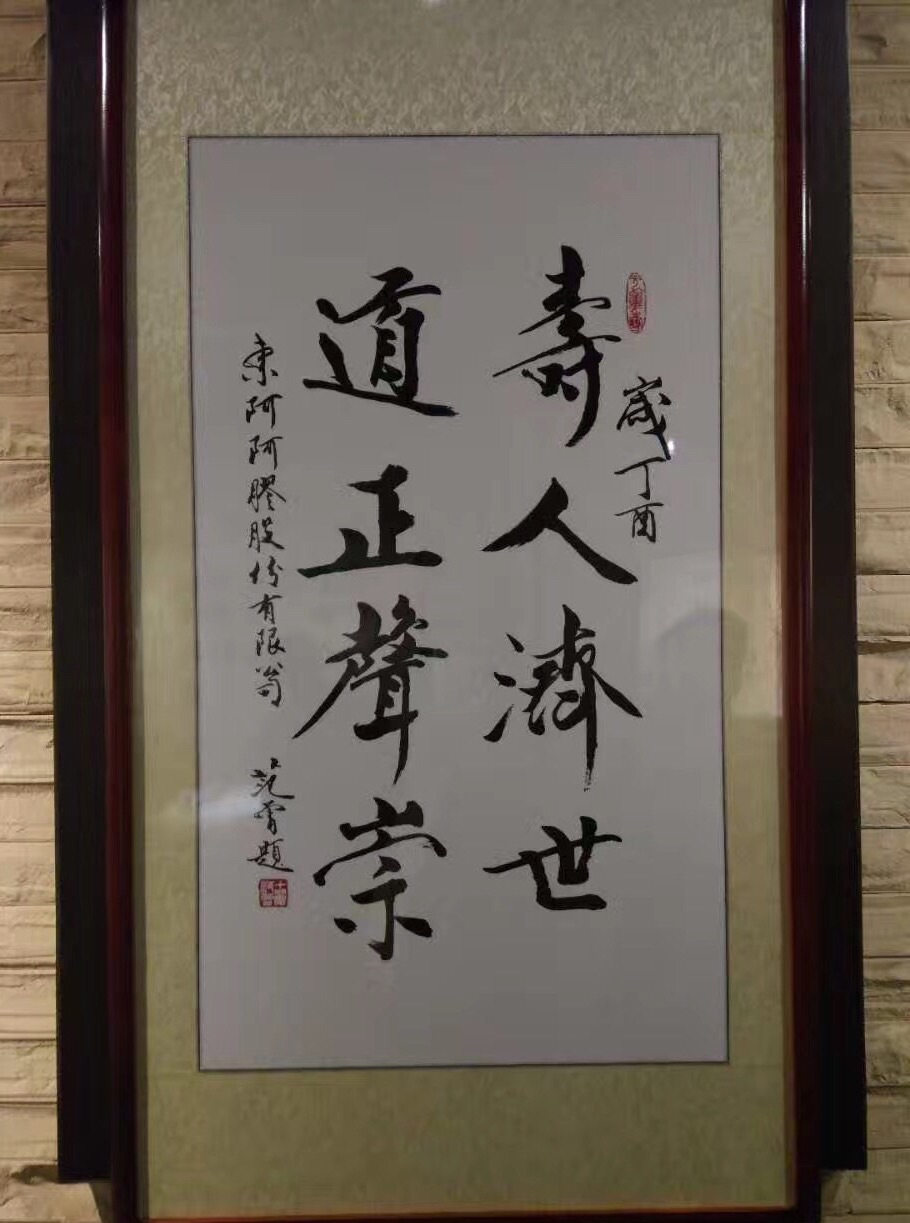 歲丁酉
壽人濟世
道正聲崇
東阿阿膠股份有限公司
範曾題